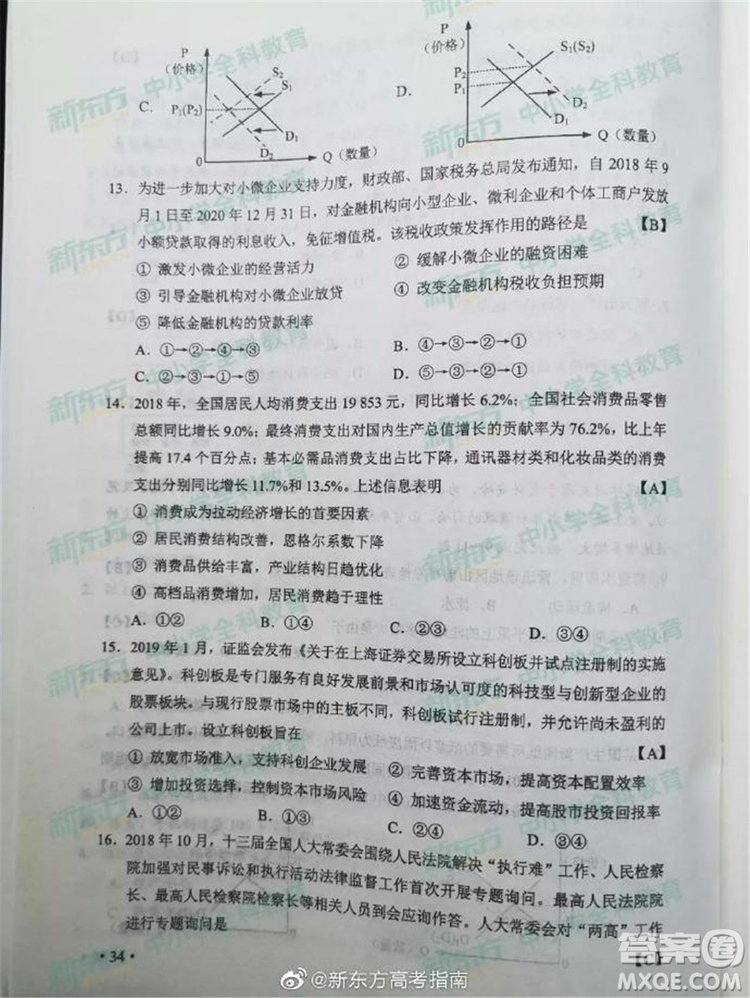 P
(价格)
S₂
S₁
C.
P₁(P₂)
D₁
D₂
0
Q (数量)
P
(价格)
S₁(S₂)
D.
P₂
P₁
D₂
D₁
0
Q (数量)
13. 为进一步加大对小微企业支持力度，财政部、国家税务总局发布通知，自 2018 年 9
月 1 日至 2020 年 12 月 31 日，对金融机构向小型企业、微利企业和个体工商户发放
小额贷款取得的利息收入，免征增值税。该税收政策发挥作用的路径是 【B】
① 激发小微企业的经营活力 ② 缓解小微企业的融资困难
③ 引导金融机构对小微企业放贷 ④ 改变金融机构税收负担预期
⑤ 降低金融机构的贷款利率
A. ①→②→④→③ B. ④→③→②→①
C. ②→③→⑤→① D. ④→⑤→②→①
14. 2018 年，全国居民人均消费支出 19 853 元，同比增长 6.2%；全国社会消费品零售
总额同比增长 9.0%；最终消费支出对国内生产总值增长的贡献率为 76.2%，比上年
提高 17.4 个百分点；基本必需品消费支出占比下降，通讯器材类和化妆品类的消费
支出分别同比增长 11.7%和 13.5%。上述信息表明 【A】
① 消费成为拉动经济增长的首要因素
② 居民消费结构改善，恩格尔系数下降
③ 消费品供给丰富，产业结构日趋优化
④ 高档品消费增加，居民消费趋于理性
A. ①② B. ①④ C. ②③ D. ③④
15. 2019 年 1 月，证监会发布《关于在上海证券交易所设立科创板并试点注册制的实施
意见》。科创板是专门服务有良好发展前景和市场认可度的科技型与创新型企业的
股票板块。与现行股票市场中的主板不同，科创板试行注册制，并允许尚未盈利的
公司上市。设立科创板旨在 【A】
① 放宽市场准入，支持科创企业发展 ② 完善资本市场，提高资本配置效率
③ 增加投资选择，控制资本市场风险 ④ 加速资金流动，提高股市投资回报率
A. ①② B. ①③ C. ②④ D. ③④
16. 2018 年 10 月，十三届全国人大常委会围绕人民法院解决“执行难”工作、人民检察
院加强对民事诉讼和执行活动法律监督工作首次开展专题询问。最高人民法院院
长、最高人民检察院检察长等相关人员到会应询作答。人大常委会对“两高”工作
进行专题询问是 【C】
· 34 ·
@新东方高考指南
答案圈
MXQE.COM
新东方 中小学全科教育
新东方 中小学全科教育
新东方 中小学全科教育
新东方 中小学全科教育
新东方 中小学全科教育